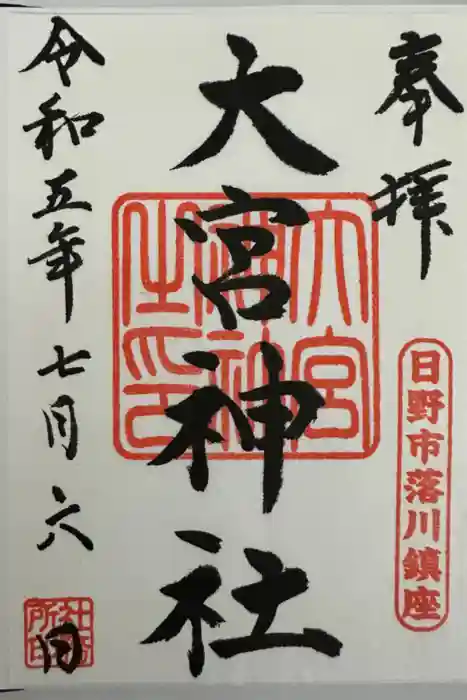 奉拝
日野市落川鎮座
大宮神社
令和五年七月六日